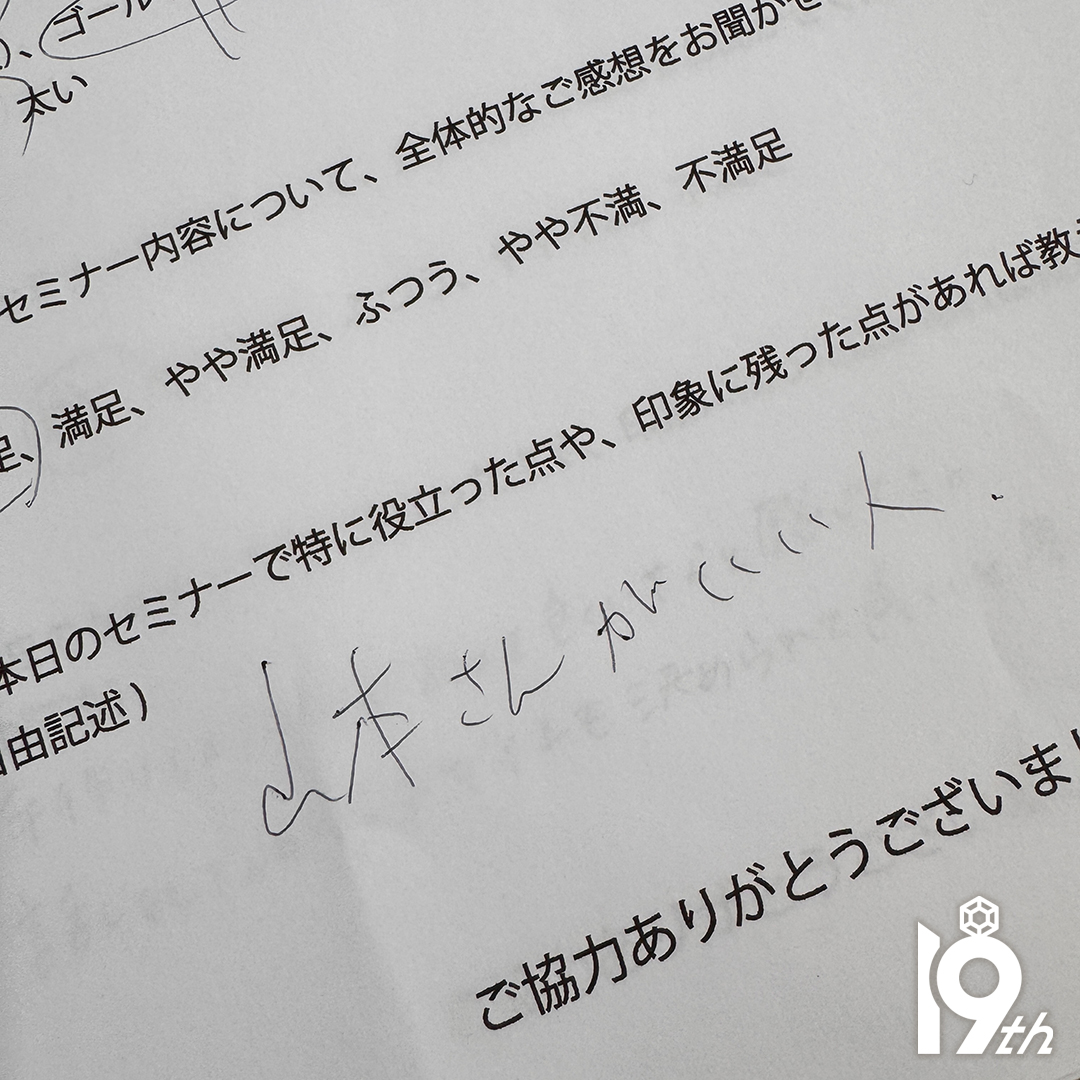 )、ゴール
太い
セミナー内容について、全体的なご感想をお聞かせ
足、満足、やや満足、ふつう、やや不満、不満足
本日のセミナーで特に役立った点や、印象に残った点があれば教え
自由記述）
山本さんがいい人.
ご協力ありがとうございまし
19th